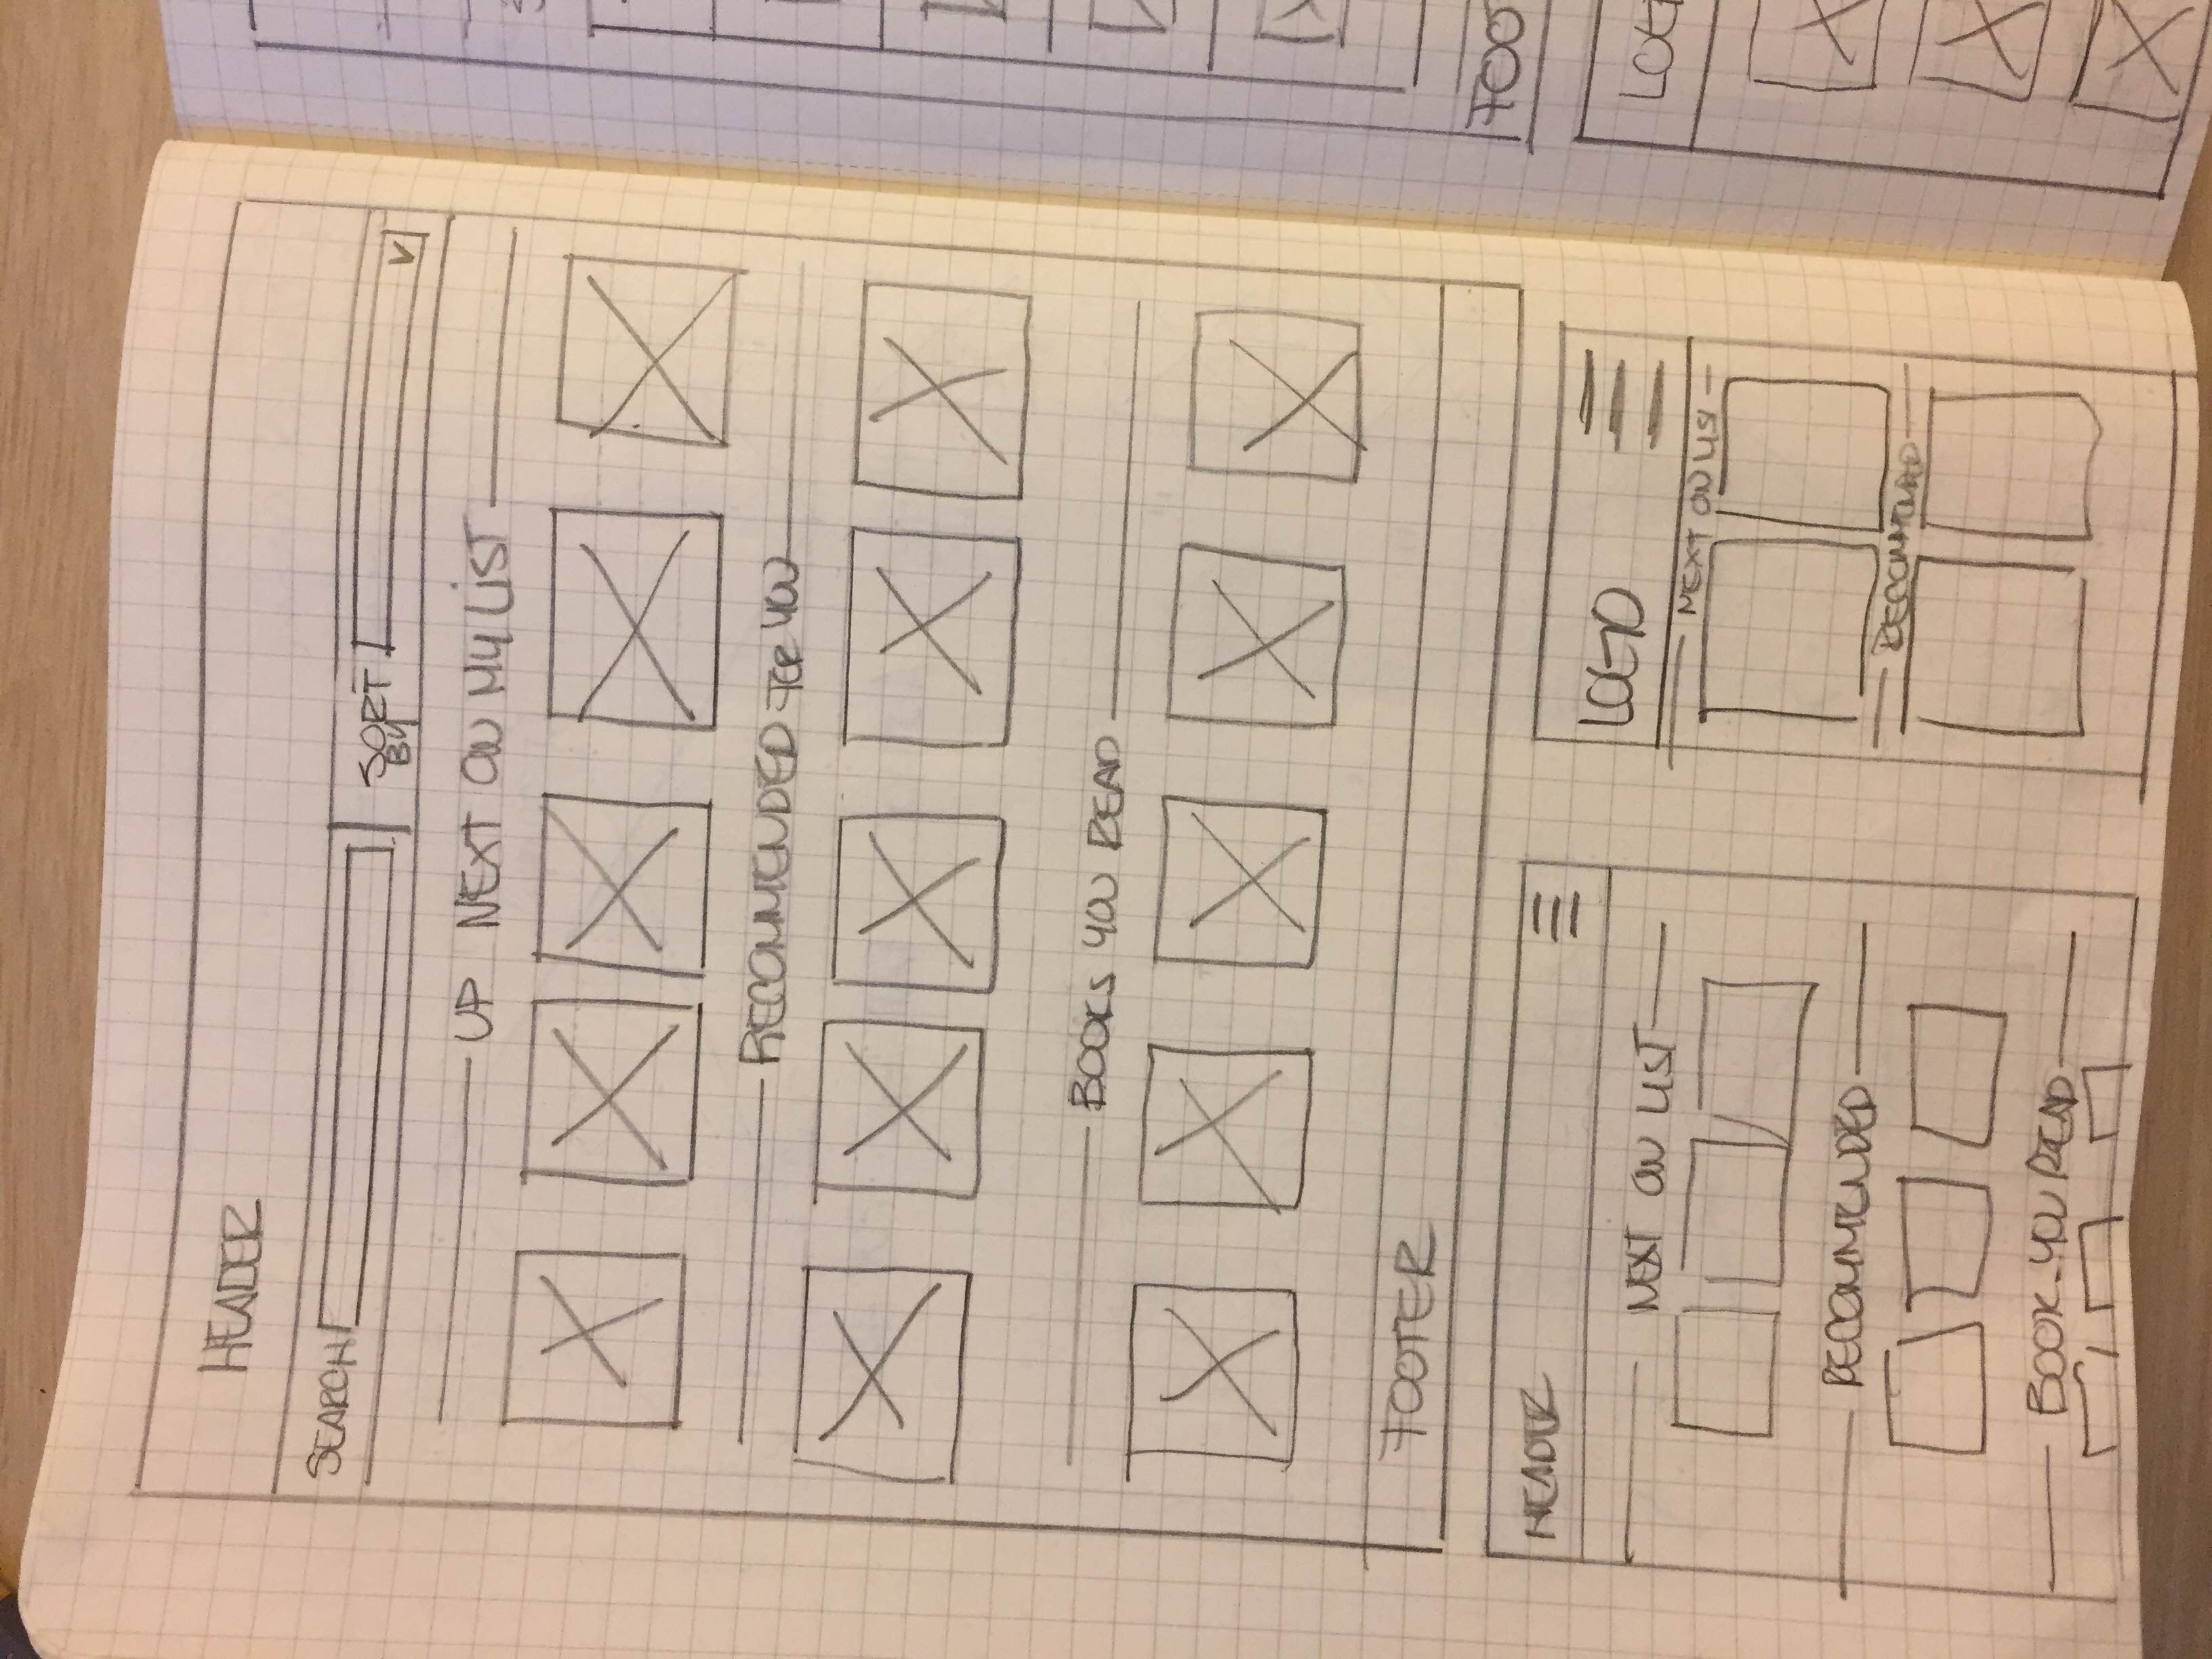 HEADER
SEARCH
SORT BY
UP NEXT ON MY LIST
RECOMMENDED FOR YOU
BOOKS YOU READ
FOOTER
HEADER
NEXT ON LIST
RECOMMENDED
BOOK YOU READ
LOGO
NEXT ON LIST
RECOMMENDED
FOO
LOG